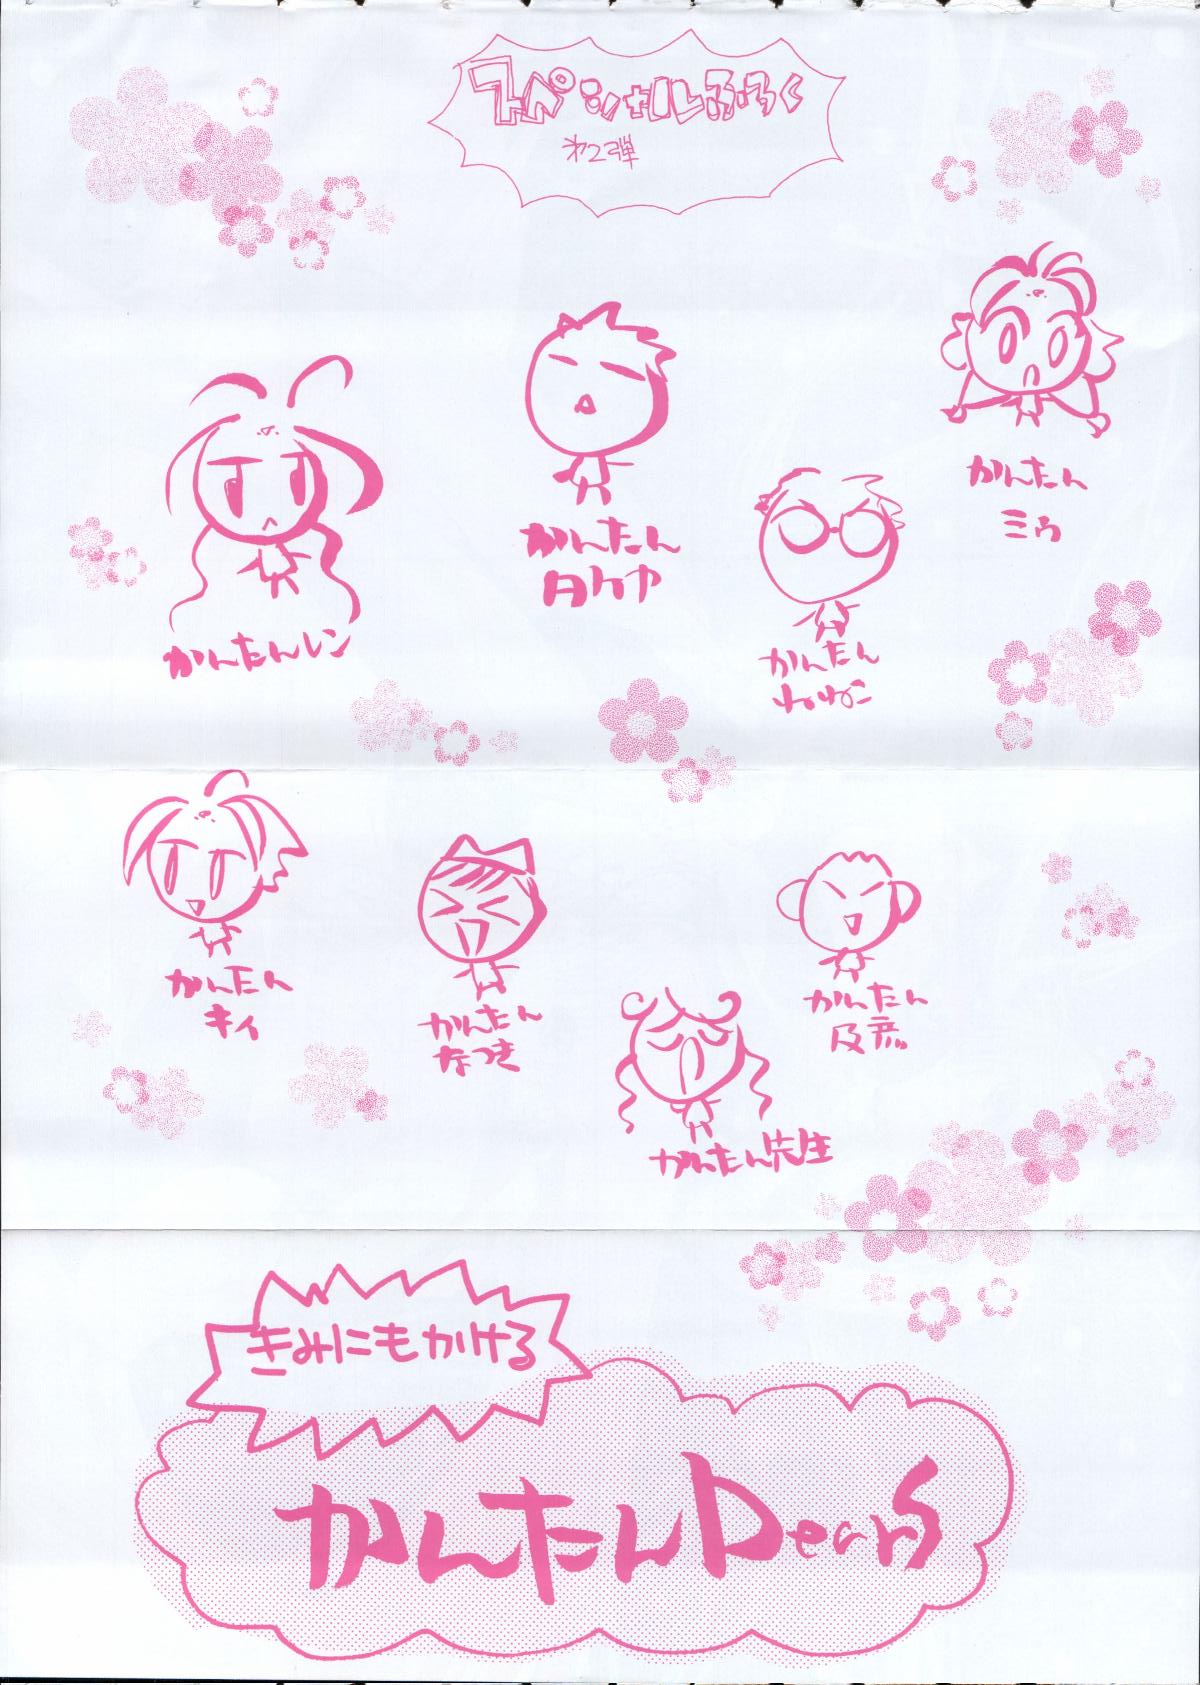 スペシャルふろく
第2弾
かんたん
ミゥ
かんたん
タケヤ
かんたんレン
かんたん
ねねこ
かんたん
キィ
かんたん
なつき
かんたん
及彦
かんたん先生
きみにもかける
かんたんDearS